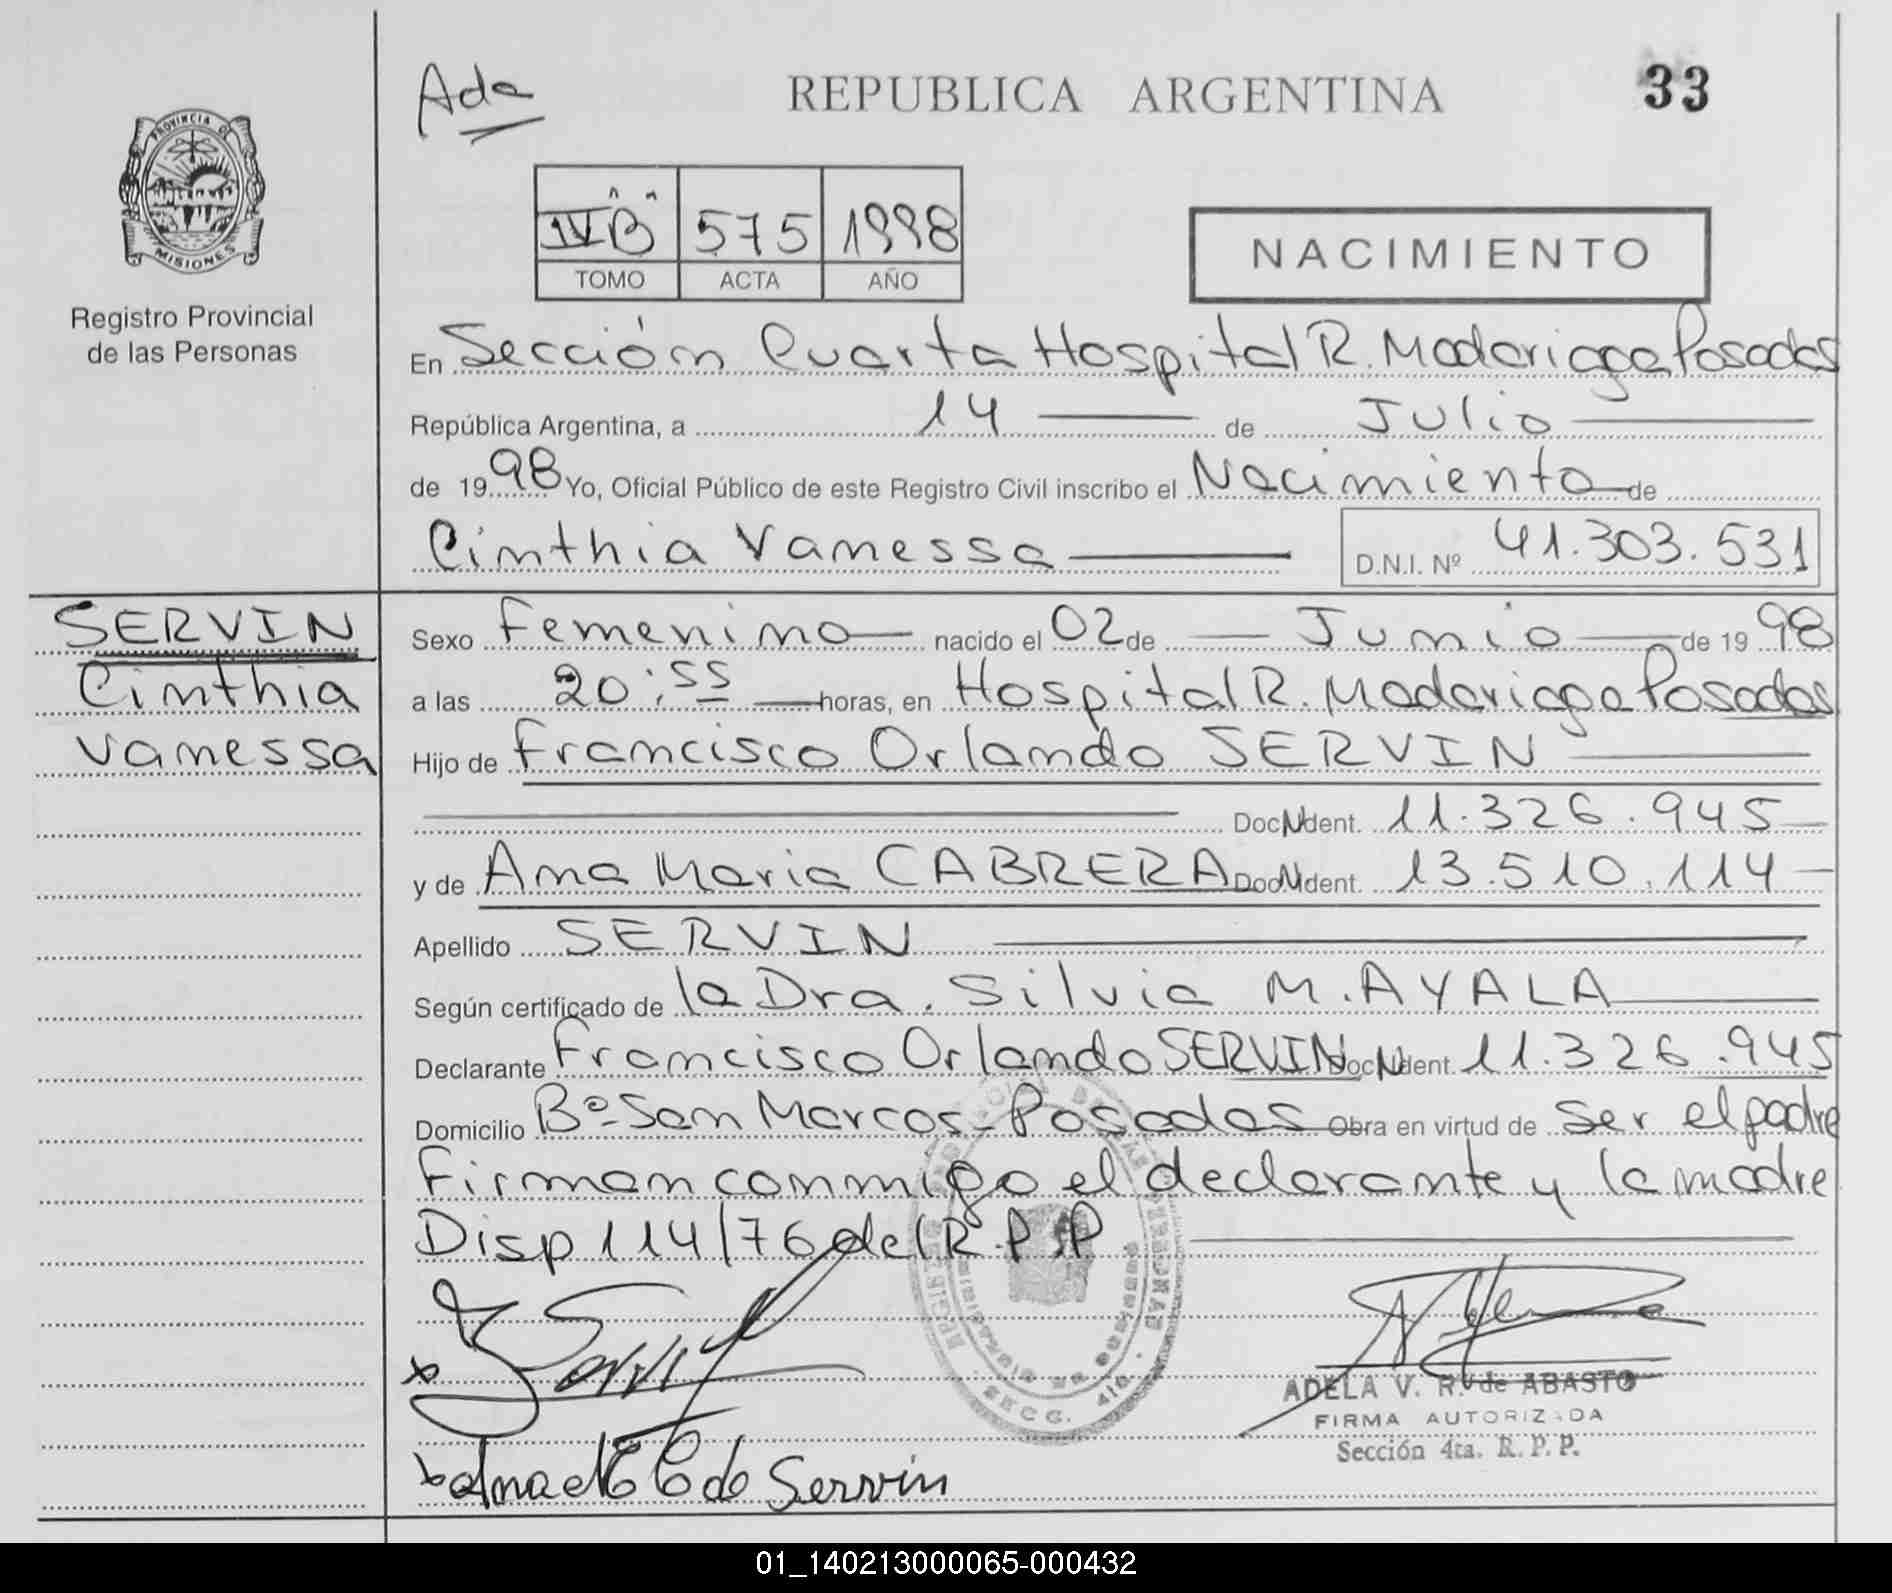 Ada
REPUBLICA ARGENTINA
33
PROVINCIA DE
MISIONES
Registro Provincial
de las Personas
IV "B" 575 1998
TOMO ACTA AÑO
NACIMIENTO
En Sección Cuarta Hospital R. Madariaga Posadas
República Argentina, a 14 de Julio
de 1998 Yo, Oficial Público de este Registro Civil inscribo el Nacimiento de
Cinthia Vanessa D.N.I. Nº 41.303.531
SERVIN
Cinthia
Vanessa
Sexo Femenino nacido el 02 de Junio de 1998
a las 20:55 horas, en Hospital R. Madariaga Posadas
Hijo de Francisco Orlando SERVIN
Doc. N Ident. 11.326.945
y de Ana Maria CABRERA Doc. N Ident. 13.510.114
Apellido SERVIN
Según certificado de la Dra. Silvia M. AYALA
Declarante Francisco Orlando SERVIN Doc. N Ident 11.326.945
Domicilio Bº San Marcos - Posadas Obra en virtud de ser el padre
Firman conmigo el declarante y la madre
Disp 114/76 del R.P.P
ADELA V. R. de ABASTO
FIRMA AUTORIZADA
Sección 4ta. R. P. P.
x
x Ana de Servin
01_140213000065-000432